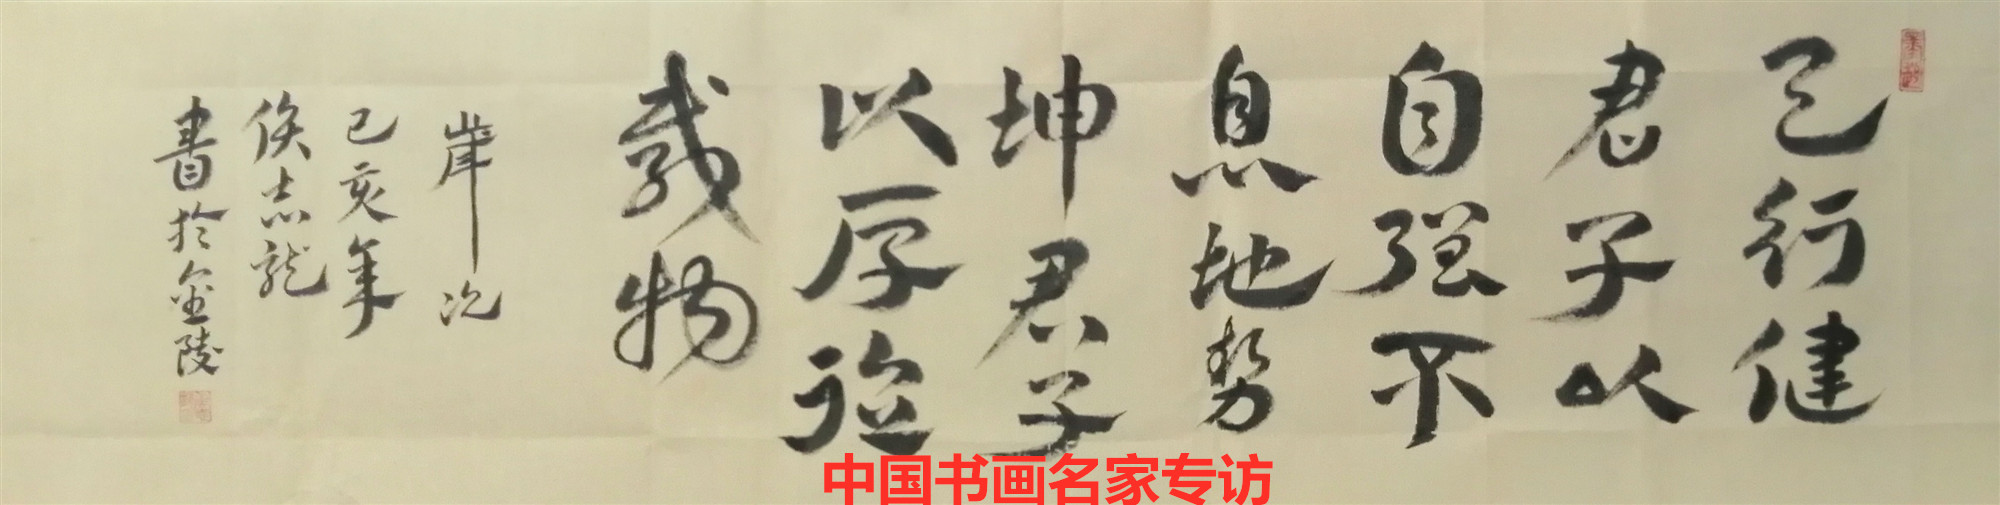 天行健
君子以
自强不
息地势
坤君子
以厚德
載物
歲次
己亥年
侯志龙
書於金陵
中国书画名家专访